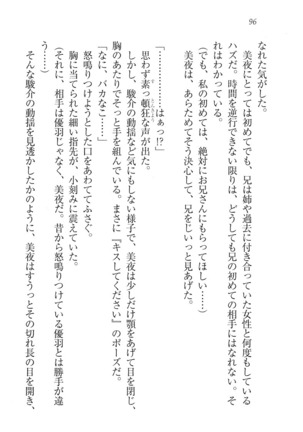 96
なれた気がした。
　美夜にとっては初めてでも、兄は姉や過去に付き合っていた女性と何度もしている
ハズだ。時間を逆行できない限りは、どうしても兄の初めての相手にはなれない。そ
れはわかっている。
（でも、私の初めては、絶対にお兄さんにもらってほしい……）
　美夜は、あらためてそう決心して、兄をじいっと見あげた。
「…………………………はぁっ!?」
　思わず素っ頓狂な声が出た。
　しかし、駿介の動揺など気にもしない様子で、美夜は少しだけ顎をあげて目を閉じ、
胸のあたりでそっと手を組んでいる。まさに『キスしてください』のポーズだ。
「なに、バカなこ……」
　怒鳴りつけようとした口をあわててふさぐ。
　胸に当てられた細い指先が、小刻みに震えていた。
（それに、相手は優羽じゃなく、美夜だ。昔から怒鳴りつけている優羽とは勝手が違
う……）
　そんな駿介の動揺を見透かしたかのように、美夜はすうっとその切れ長の目を開き、